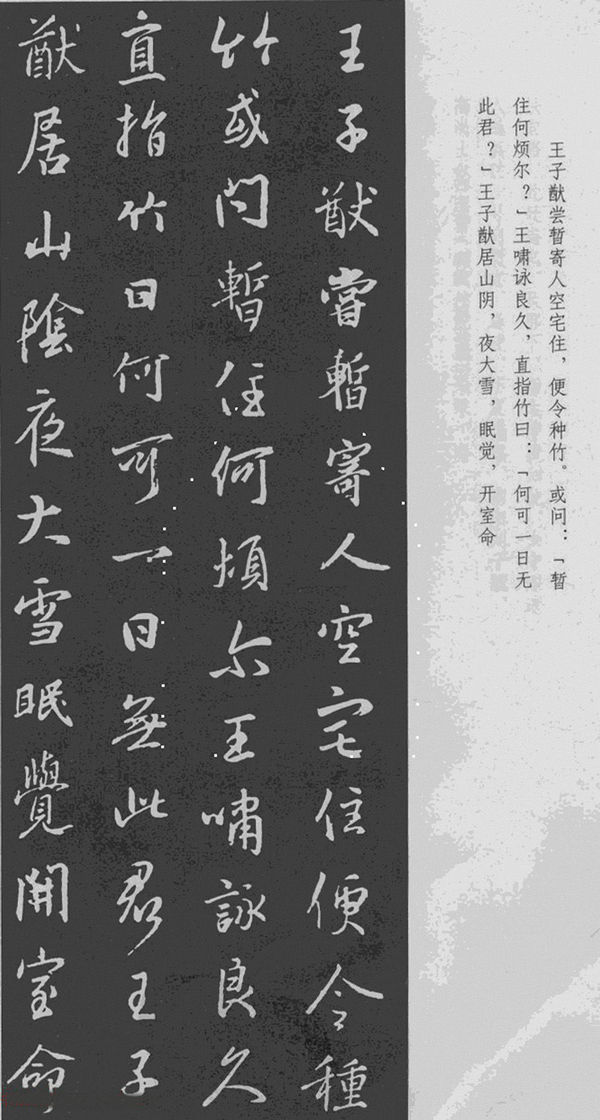 王子猷尝暂寄人空宅住，便令种竹。或问：「暂
住何烦尔？」王啸咏良久，直指竹曰：「何可一日无
此君？」王子猷居山阴，夜大雪，眠觉，开室命
王子猷嘗暫寄人空宅住便令種
竹或问暫住何煩尔王嘯詠良久
直指竹曰何可一日無此君王子
猷居山陰夜大雪眠覺開室命